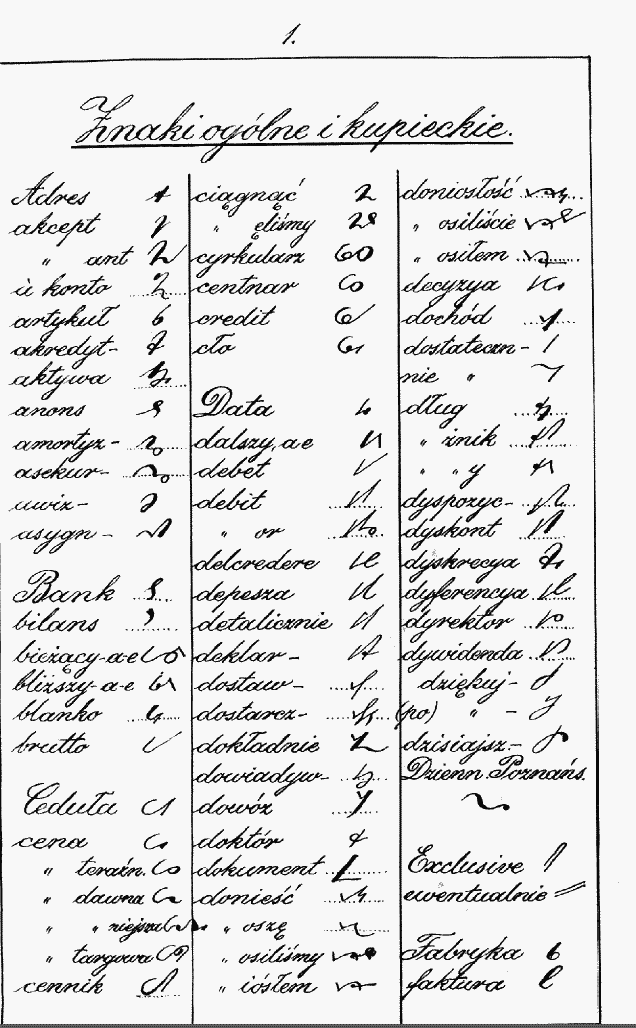 1.
Znaki ogólne i kupieckie.
Adres
akcept
„ ant
à konto
artykuł
akredyt-
aktywa
anons
amortyz-
asekur-
awiz-
asygn-
Bank
bilans
bieżący-a-e
bliższy-a-e
blanko
brutto
Ceduła
cena
„ teraźn.
„ dawna
„ „
„ targowa
cennik
ciągnąć
„ ęliśmy
cyrkularz
centnar
credit
cło
Data
dalszy, a e
debet
debit
„ or
delcredere
depesza
detalicznie
deklar-
dostaw-
dostarcz-
dokładnie
dowiadyw-
dowóz
doktór
dokument
donieść
„ oszę
„ osiliśmy
„ iósłem
doniosłość
„ osiliście
„ osiłem
decyzya
dochód
dostateczn-
nie „
dług
„ żnik
„ „ y
dyspozyc-
dyskont
dyskrecya
dyferencya
dyrektor
dywidenda
dziękuj-
(po) „ -
dzisiajsz-
Dzienn. Poznańs.
Exclusive
ewentualnie
Fabryka
faktura